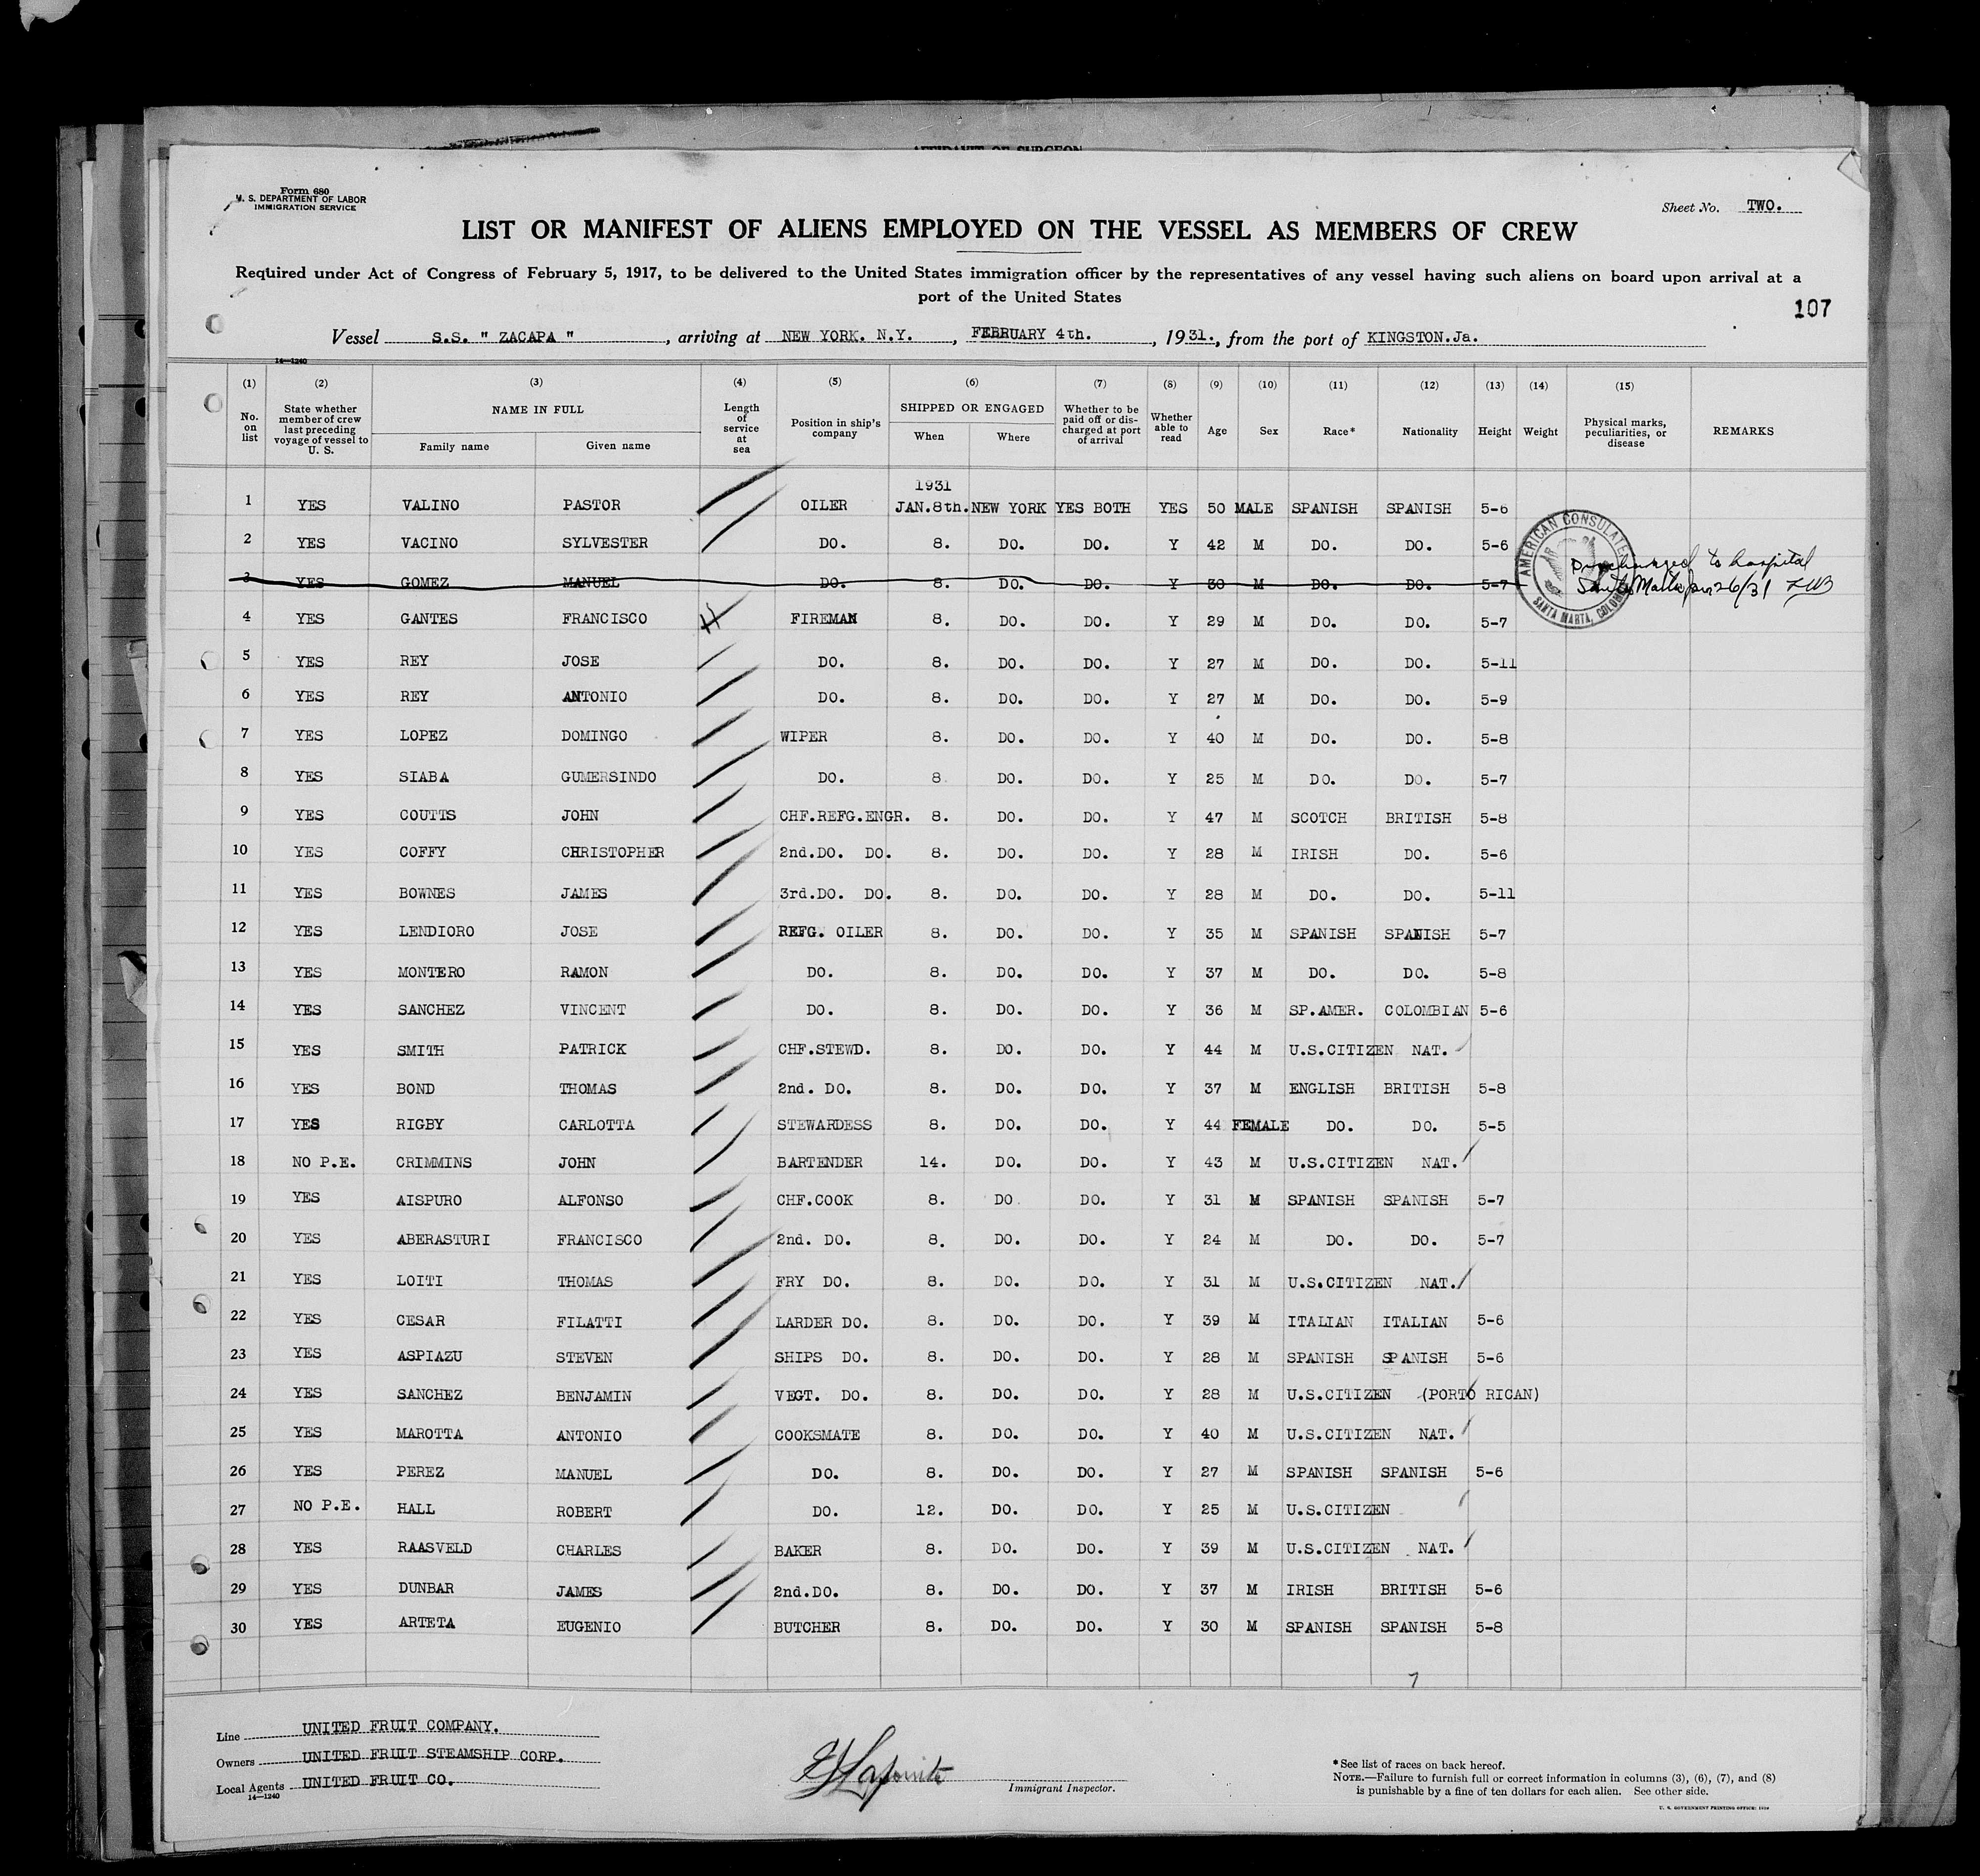 AFFIDAVIT OF SURGEON
Form 680
U. S. DEPARTMENT OF LABOR
IMMIGRATION SERVICE
Sheet No. TWO.
LIST OR MANIFEST OF ALIENS EMPLOYED ON THE VESSEL AS MEMBERS OF CREW
Required under Act of Congress of February 5, 1917, to be delivered to the United States immigration officer by the representatives of any vessel having such aliens on board upon arrival at a
port of the United States
107
Vessel S.S. " ZACAPA ", arriving at NEW YORK. N.Y., FEBRUARY 4th., 1931., from the port of KINGSTON.Ja.
14—1240
(1) (2) (3) (4) (5) (6) (7) (8) (9) (10) (11) (12) (13) (14) (15)
No. on list State whether member of crew last preceding voyage of vessel to U. S. NAME IN FULL Family name Given name Length of service at sea Position in ship's company SHIPPED OR ENGAGED When Where Whether to be paid off or discharged at port of arrival Whether able to read Age Sex Race* Nationality Height Weight Physical marks, peculiarities, or disease REMARKS
1931
1 YES VALINO PASTOR OILER JAN.8th. NEW YORK YES BOTH YES 50 MALE SPANISH SPANISH 5-6
2 YES VACINO SYLVESTER DO. 8. DO. DO. Y 42 M DO. DO. 5-6
3 YES GOMEZ MANUEL DO. 8. DO. DO. Y 30 M DO. DO. 5-7
AMERICAN CONSULATE SANTA MARTA, COLOM
Discharged to hospital
Santa Marta Jan 26/31
4 YES GANTES FRANCISCO FIREMAN 8. DO. DO. Y 29 M DO. DO. 5-7
5 YES REY JOSE DO. 8. DO. DO. Y 27 M DO. DO. 5-11
6 YES REY ANTONIO DO. 8. DO. DO. Y 27 M DO. DO. 5-9
7 YES LOPEZ DOMINGO WIPER 8. DO. DO. Y 40 M DO. DO. 5-8
8 YES SIABA GUMERSINDO DO. 8. DO. DO. Y 25 M DO. DO. 5-7
9 YES COUTTS JOHN CHF.REFG.ENGR. 8. DO. DO. Y 47 M SCOTCH BRITISH 5-8
10 YES COFFY CHRISTOPHER 2nd.DO. DO. 8. DO. DO. Y 28 M IRISH DO. 5-6
11 YES BOWNES JAMES 3rd.DO. DO. 8. DO. DO. Y 28 M DO. DO. 5-11
12 YES LENDIORO JOSE REFG. OILER 8. DO. DO. Y 35 M SPANISH SPANISH 5-7
13 YES MONTERO RAMON DO. 8. DO. DO. Y 37 M DO. DO. 5-8
14 YES SANCHEZ VINCENT DO. 8. DO. DO. Y 36 M SP.AMER. COLOMBIAN 5-6
15 YES SMITH PATRICK CHF.STEWD. 8. DO. DO. Y 44 M U.S.CITIZEN NAT.
16 YES BOND THOMAS 2nd. DO. 8. DO. DO. Y 37 M ENGLISH BRITISH 5-8
17 YES RIGBY CARLOTTA STEWARDESS 8. DO. DO. Y 44 FEMALE DO. DO. 5-5
18 NO P.E. CRIMMINS JOHN BARTENDER 14. DO. DO. Y 43 M U.S.CITIZEN NAT.
19 YES AISPURO ALFONSO CHF.COOK 8. DO. DO. Y 31 M SPANISH SPANISH 5-7
20 YES ABERASTURI FRANCISCO 2nd. DO. 8. DO. DO. Y 24 M DO. DO. 5-7
21 YES LOITI THOMAS FRY DO. 8. DO. DO. Y 31 M U.S.CITIZEN NAT.
22 YES CESAR FILATTI LARDER DO. 8. DO. DO. Y 39 M ITALIAN ITALIAN 5-6
23 YES ASPIAZU STEVEN SHIPS DO. 8. DO. DO. Y 28 M SPANISH SPANISH 5-6
24 YES SANCHEZ BENJAMIN VEGT. DO. 8. DO. DO. Y 28 M U.S.CITIZEN (PORTO RICAN)
25 YES MAROTTA ANTONIO COOKSMATE 8. DO. DO. Y 40 M U.S.CITIZEN NAT.
26 YES PEREZ MANUEL DO. 8. DO. DO. Y 27 M SPANISH SPANISH 5-6
27 NO P.E. HALL ROBERT DO. 12. DO. DO. Y 25 M U.S.CITIZEN
28 YES RAASVELD CHARLES BAKER 8. DO. DO. Y 39 M U.S.CITIZEN NAT.
29 YES DUNBAR JAMES 2nd.DO. 8. DO. DO. Y 37 M IRISH BRITISH 5-6
30 YES ARTETA EUGENIO BUTCHER 8. DO. DO. Y 30 M SPANISH SPANISH 5-8
7
Line UNITED FRUIT COMPANY.
Owners UNITED FRUIT STEAMSHIP CORP.
Local Agents UNITED FRUIT CO.
14—1240
Immigrant Inspector.
*See list of races on back hereof.
NOTE.—Failure to furnish full or correct information in columns (3), (6), (7), and (8)
is punishable by a fine of ten dollars for each alien. See other side.